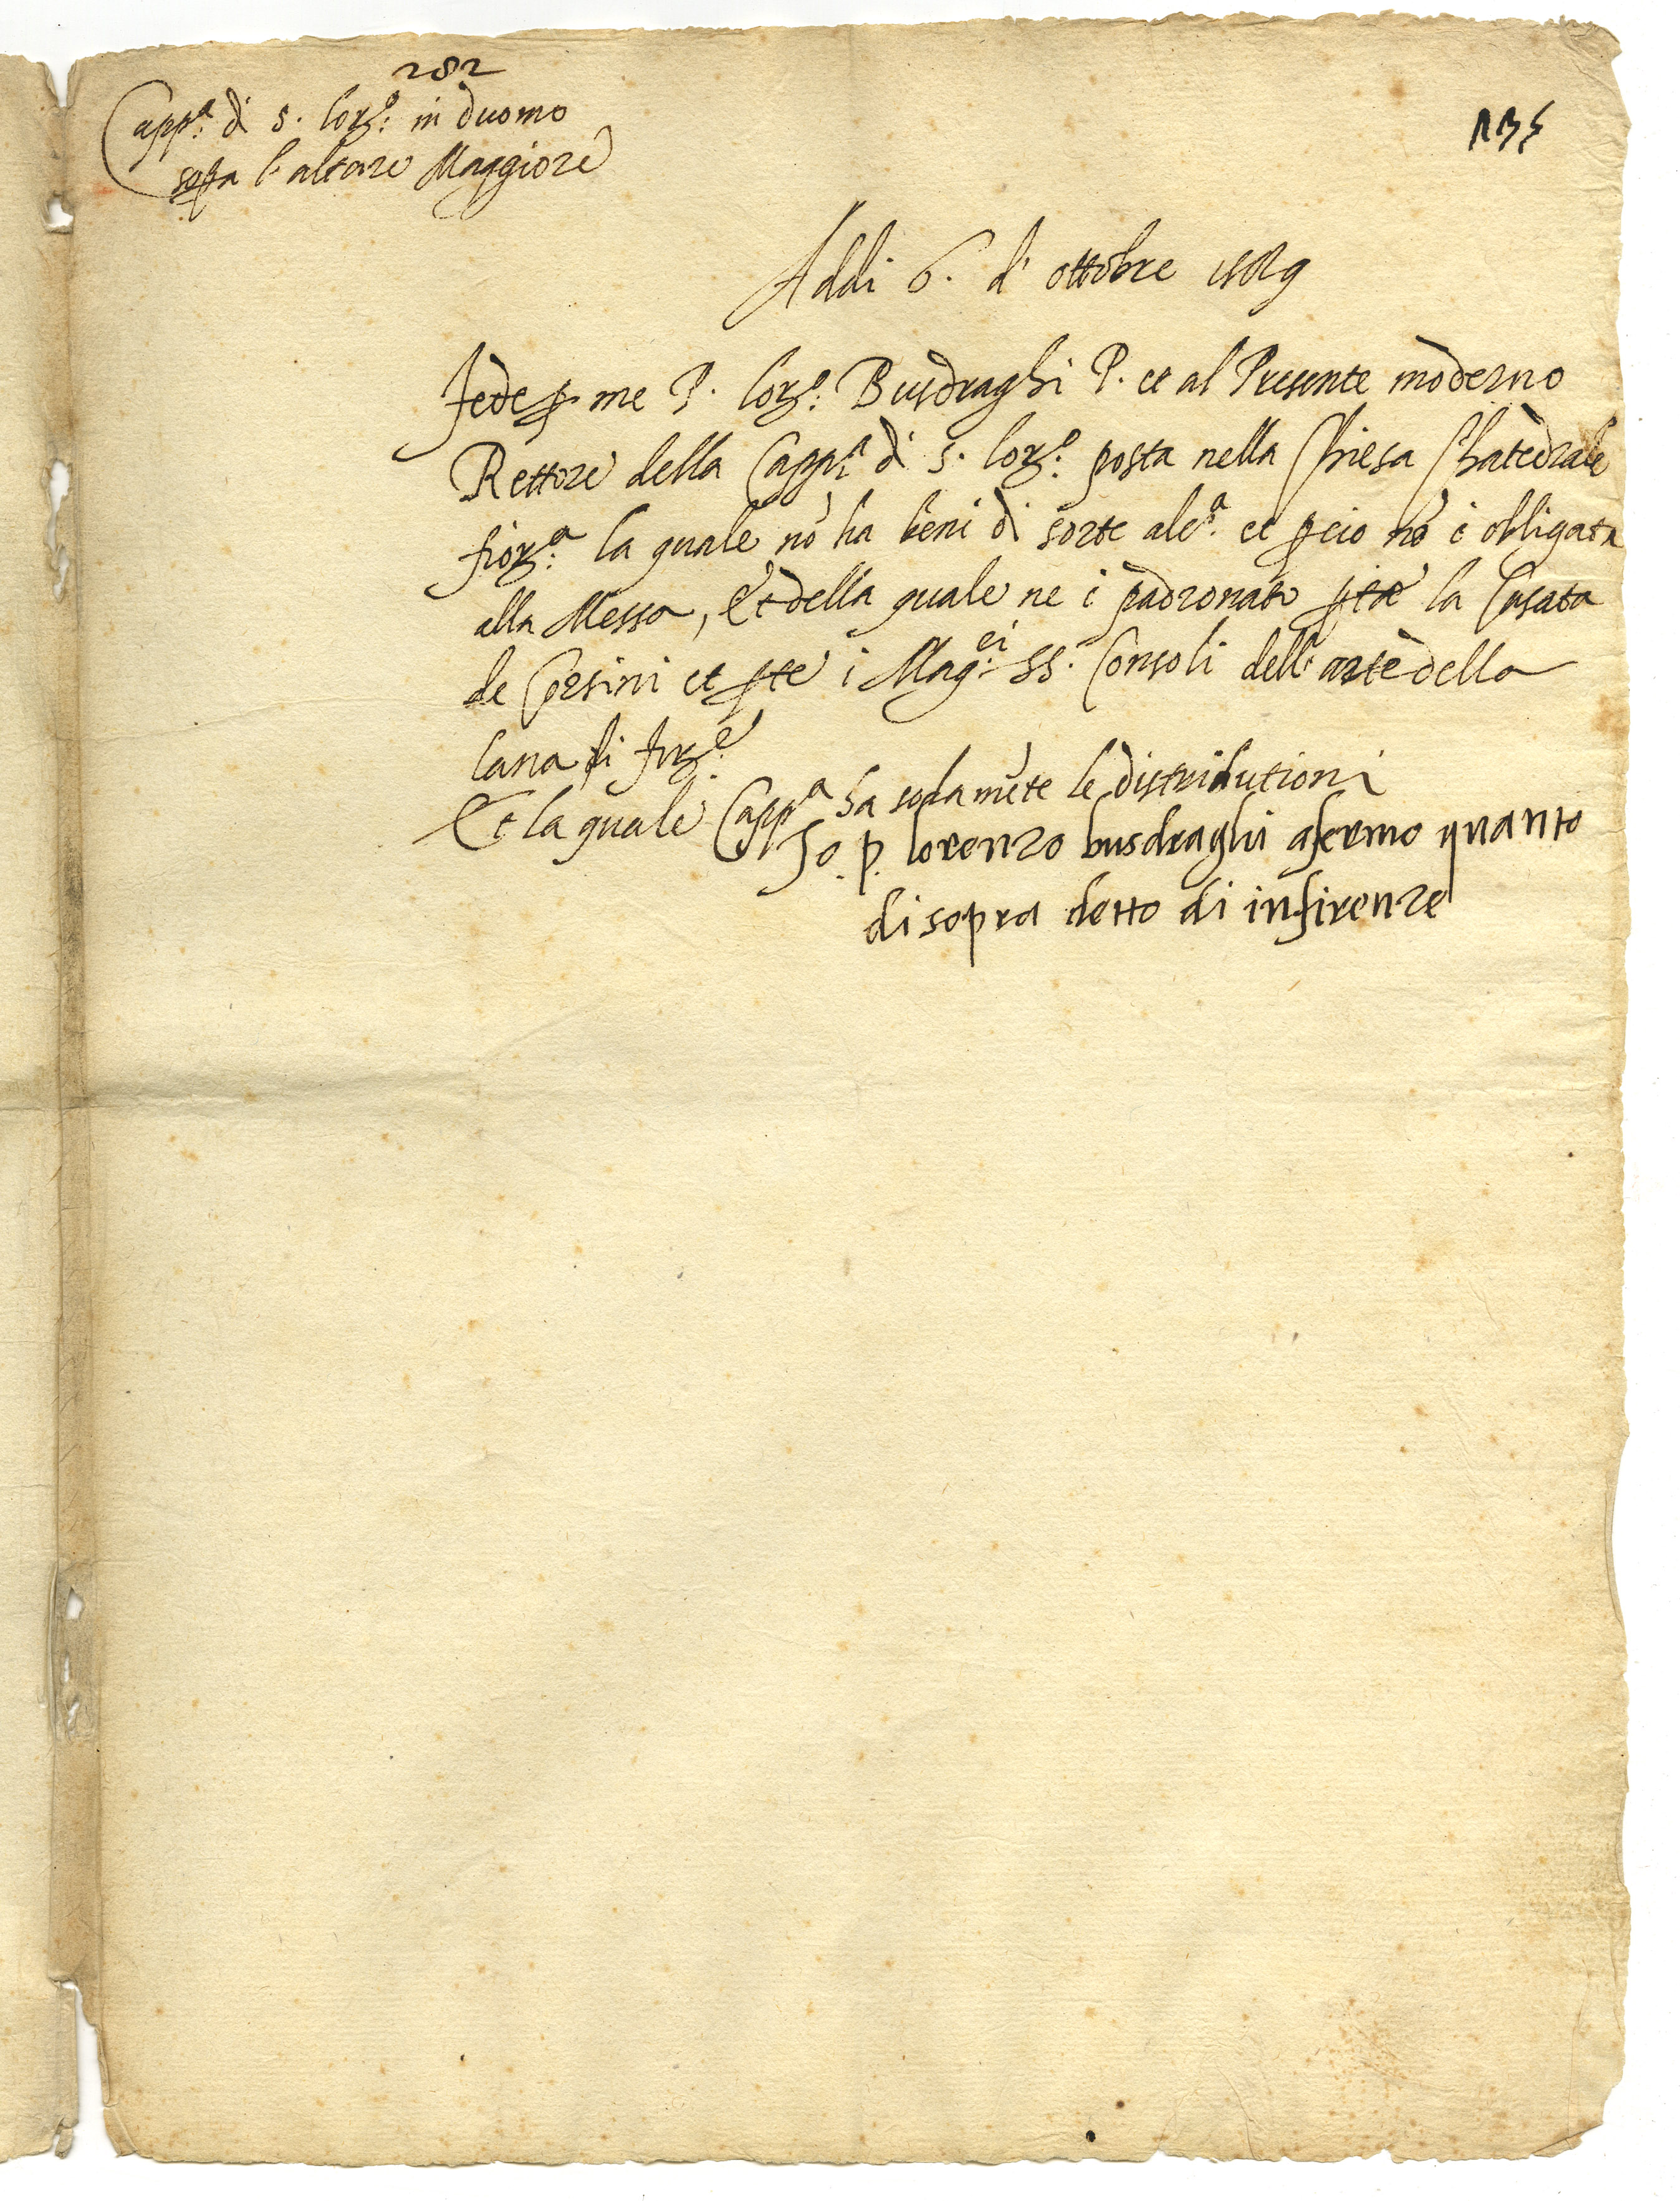 282
Capp.ª di s. Lorz.º in duomo
sop.ª l'altare Maggiore
135
Addi 6. d' ottobre 1589
Fede p me P. Lorz.º Busdraghi P. et al Presente moderno
Rettore della Capp.ª di s. Lorz.º posta nella Chiesa Chatedrale
fior.ª la quale nō ha beni di sorte alc.ª et p cio nō è obligata
alla Messa, Et della quale ne è padronato pte la Casata
de Corsini et pte i Mag.ci SS. Consoli dell'arte della
lana di Firz.e
Et la quale Capp.ª ha solamēte le distributioni
Io. p. lorenzo busdraghi afermo quanto
di sopra detto di in firenze